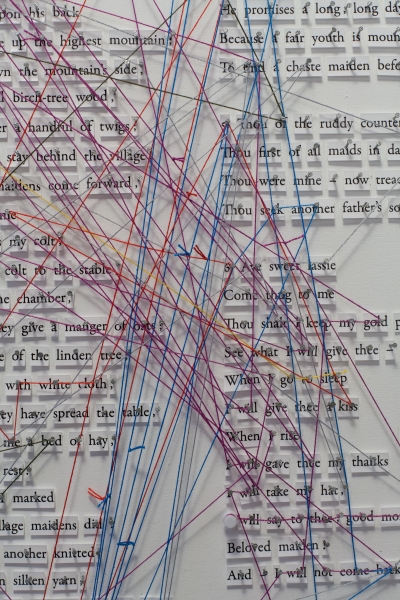 on his back
up the highest mountain;
the mountain's side;
birch-tree wood;
a handful of twigs;
stay behind the village
maidens come forward,
me
s my colt;
colt to the stable,
chamber;
ey give a manger of oats;
e of the linden tree;
with white cloth;
ey have spread the table,
me a bed of hay,
rest;
I marked
llage maidens did;
another knitted;
n silken yarn;
He promises a long, long day
Because a fair youth is
To a chaste maiden
Thou of the ruddy
Thou first of all maids in
Thou were mine – now
Thou seek another father's
sweet lassie
Come thou to me
Thou shalt keep my gold
See what I will give thee –
When I go to sleep
I will give thee a kiss
When I rise
I will gave thee my thanks
I will take my hat,
I will say to thee, good
Beloved maiden!
And – I will not come back